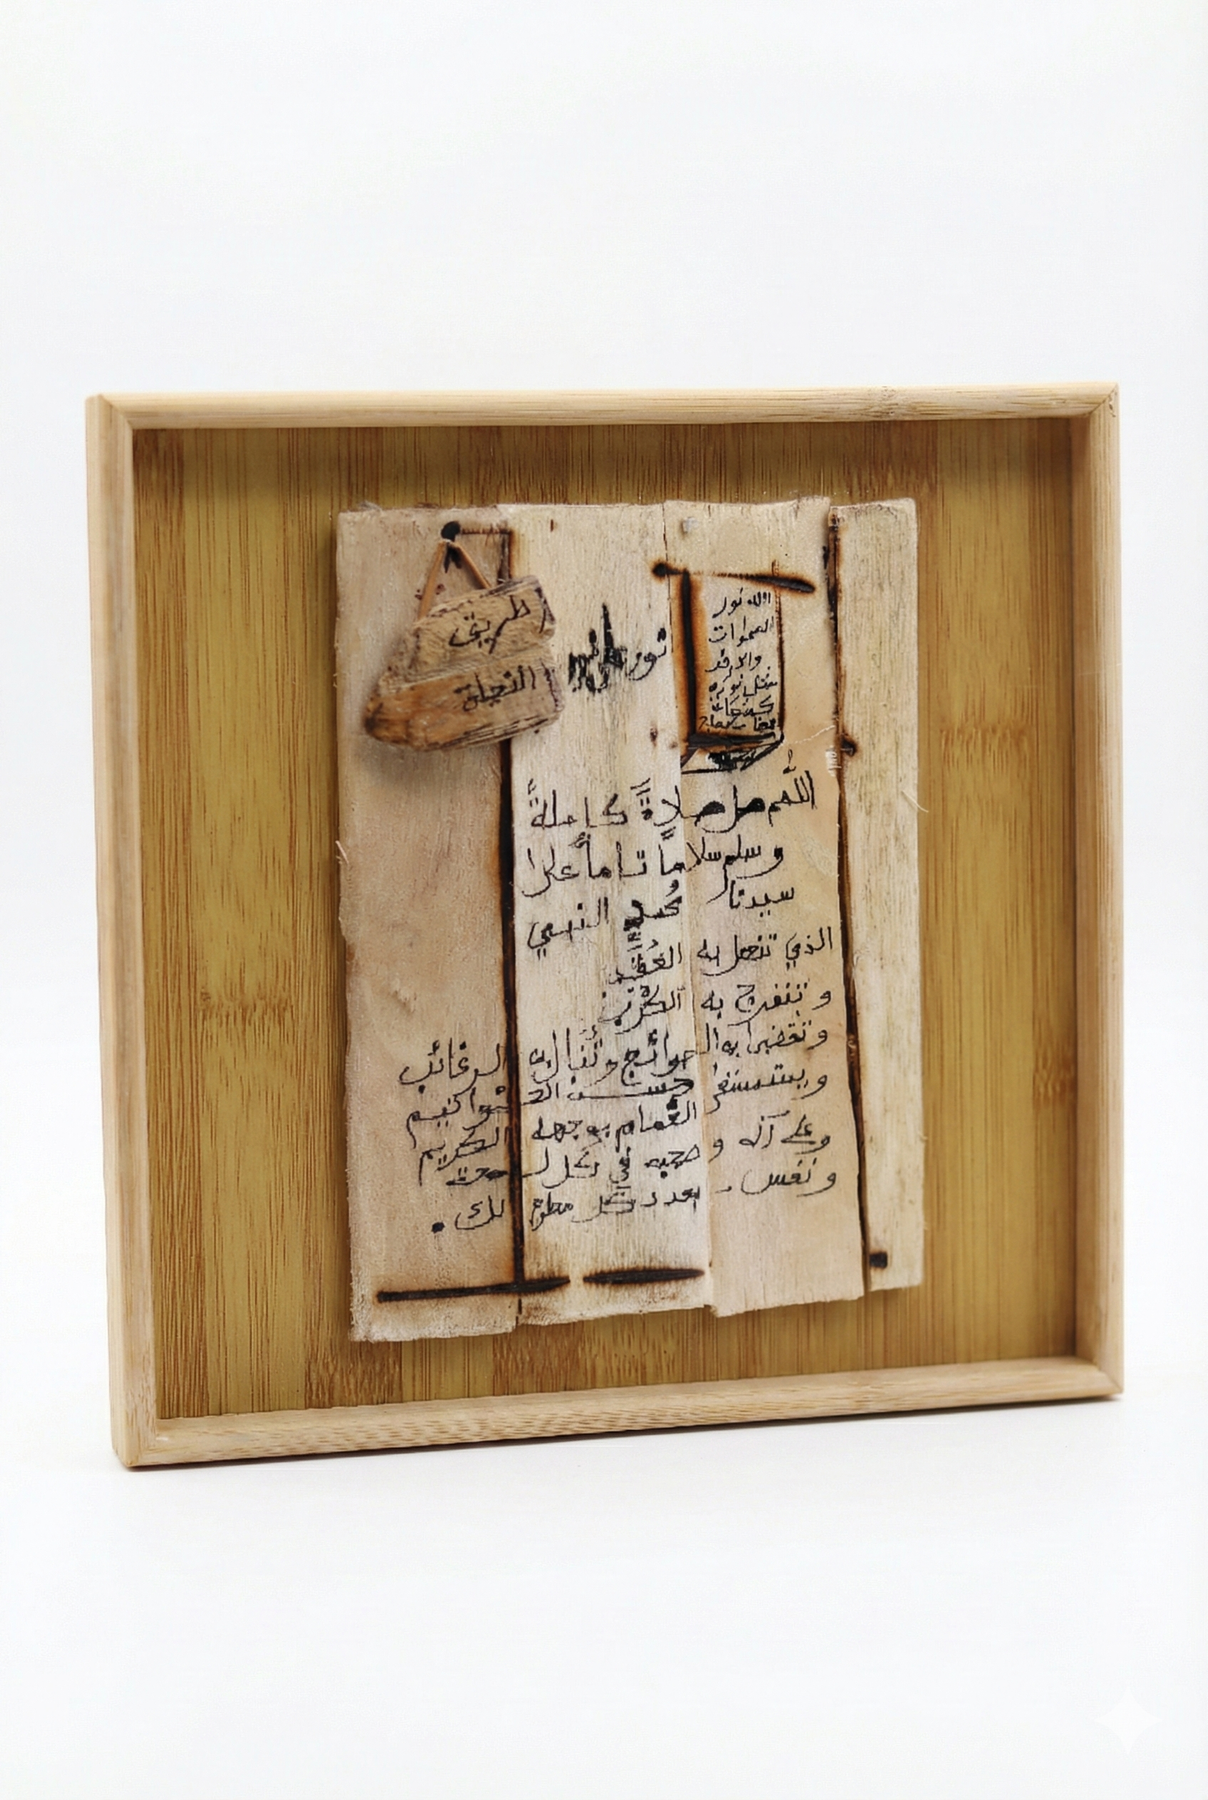 طريق
نور على نور
الله نور
السموات
والارض
مثل نوره
كمشكاة
اللهم صل صلاةً كاملةً
وسلم سلاماً تاماً على
سيدنا محمد النبي
الذي تنحل به العُقَد
و تنفرج به الكُرَب
وتقضى به الحوائج وتُنال به الرغائب
و يستسقى الغمام بوجهه الكريم
وعلى آله و صحبه في كل
و نفس بعدد كل معلوم لك.